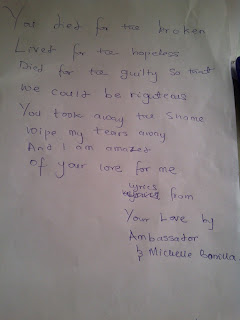 You died for the broken
Lived for the hopeless
Died for the guilty so that
we could be righteous
You took away the shame
wipe my tears away
And I am amazed
Of your love for me
lyrics from
Your Love by
Ambassador
ft Michelle Bonilla